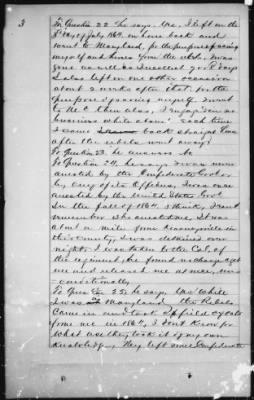 3
To Question 22 he says. Yes, I left on the
5th day of July 1864. on horse back and
went to Maryland, for the purpose of saving
myself and horses from the rebels, I was
gone as well as I recollect 7 or 8 days
I also left on one other occasion
about 2 weeks after that. for the
purpose of saving myself I went
to Md. then also, I engaged in no
business while alone. each time
I came back straight home
after the rebels went away.
To Question 23. he answers No
To Question 24. he says I was never
arrested by the Confederate Govt or
by any of its Officers, I was once
arrested by the United States Govt.
in the fall of 1864. I think, I don't
remember who arrested me, It was
about a mile from Kearneysville in
this County, I was detained one
night, I was taken to the Col. of
the regiment, he found no charge agst
me and released me at once, un-
conditionally.
To Question 25. he says Yes While
I was in Maryland the Rebels
Came in and took of oats
from me in 1864, I dont Know for
what use they took it of my own
Knowledge. They left some Confederate